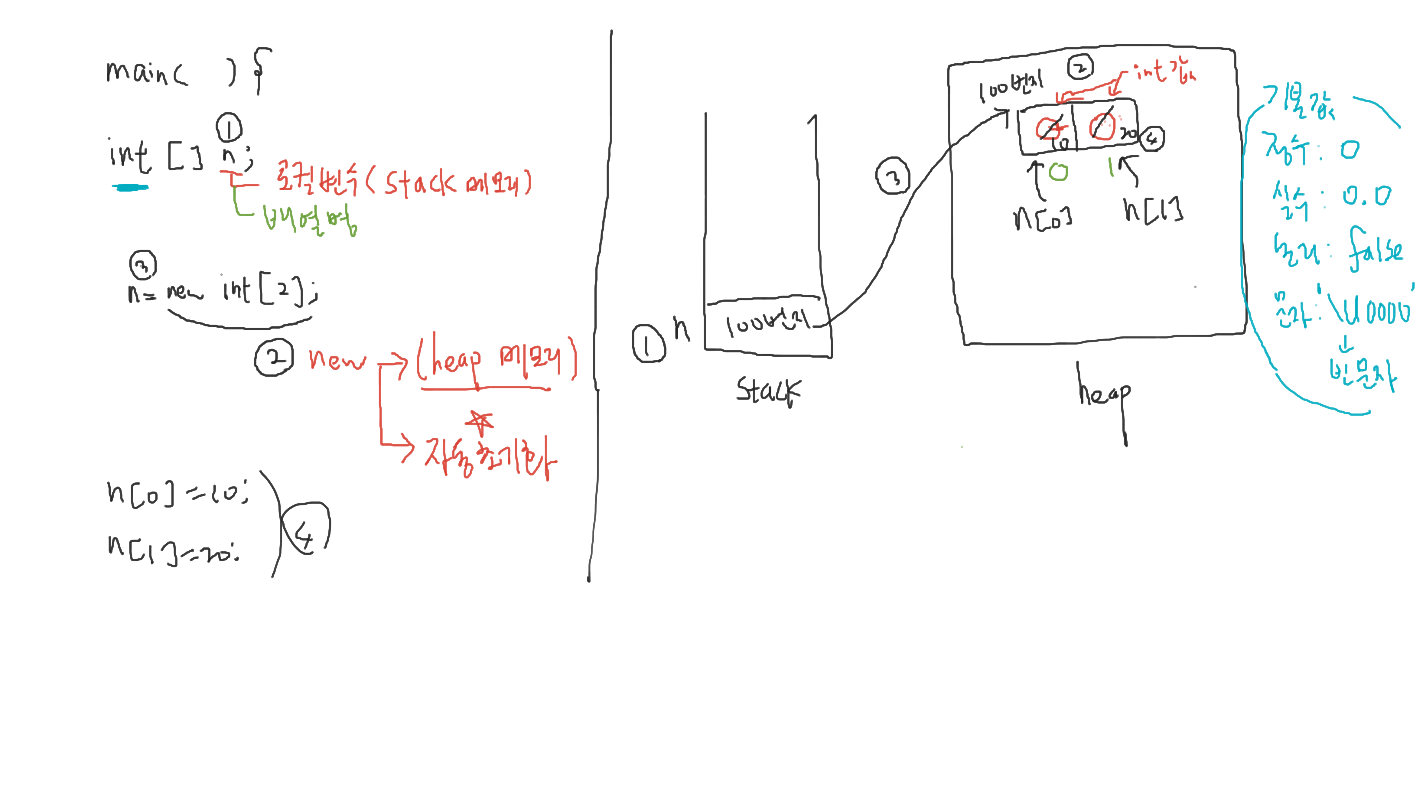 main( ) {
①
int [] n;
로컬변수(Stack 메모리)
배열명
③
n = new int[2];
② new → (heap 메모리)
☆
→ 자동초기화
n[0]=10;
n[1]=20;
④
① n
100번지
Stack
③
100번지
②
int값
0 0
10 20 ④
0 1
n[0] n[1]
heap
기본값
정수: 0
실수: 0.0
논리: false
문자: '\u0000'
↓
빈문자